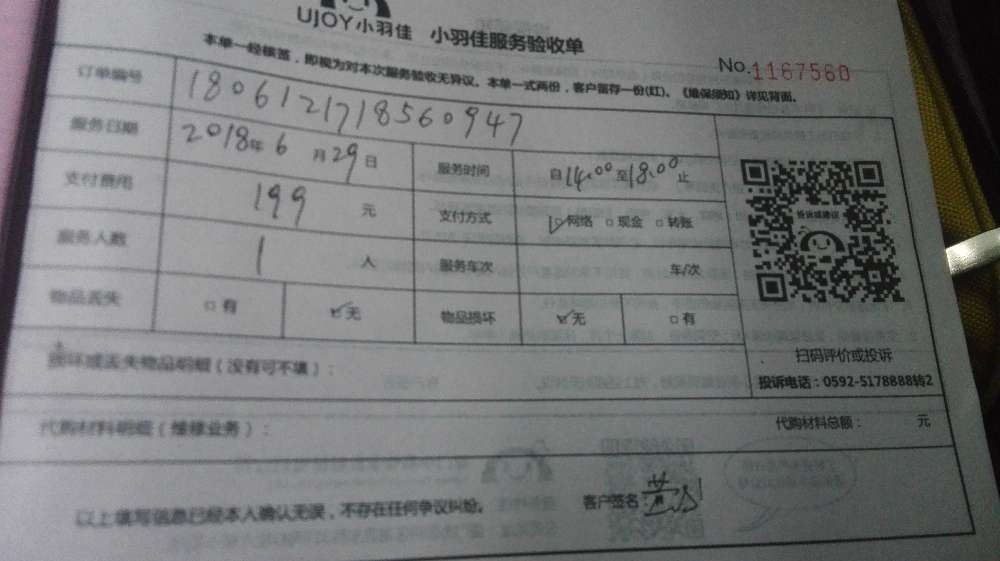 UJOY小羽佳 小羽佳服务验收单
No.1167560
本单一经核签，即视为对本次服务验收无异议。本单一式两份，客户留存一份(红)。《维保须知》详见背面。
订单编号 1806121718560947
服务日期 2018年6月29日 服务时间 自14:00至18:00止
支付费用 199 元 支付方式 网络 现金 转账
服务人数 1 人 服务车次 车/次
物品丢失 有 无 物品损坏 无 有
投诉或建议
扫码评价或投诉
投诉电话：0592-5178888转2
损坏或丢失物品明细（没有可不填）：
代购材料明细（维修业务）： 代购材料总额： 元
以上填写信息已经本人确认无误，不存在任何争议纠纷。 客户签名：